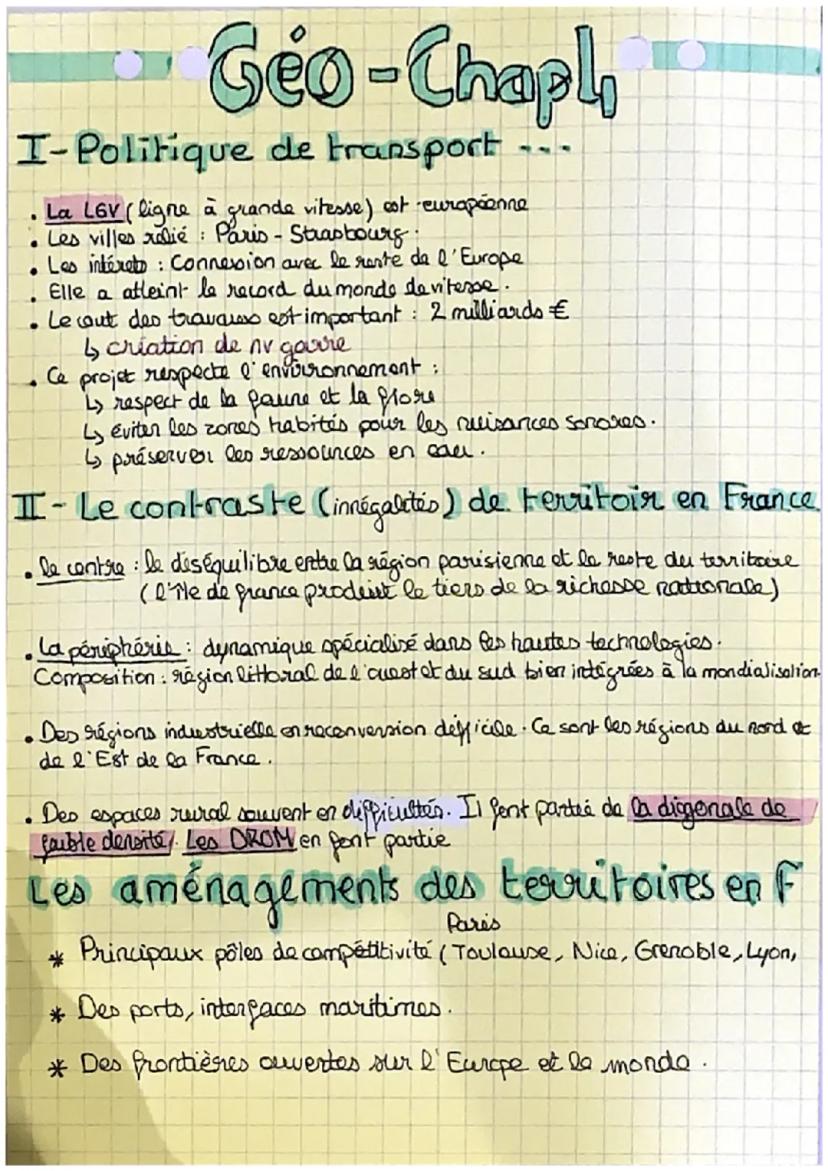 Géo - Chap4
I - Politique de transport ---
• La LGV (ligne à grande vitesse) est européenne
• Les villes relié : Paris - Strasbourg.
• Les intérets : Connexion avec le reste de l'Europe
• Elle a atteint le record du monde de vitesse.
• Le cout des travaux est important : 2 milliards €
↳ création de nv garre
• Ce projet respecte l'environnement :
↳ respect de la faune et la flore
↳ éviter les zones habités pour les nuisances sonores.
↳ préserver les ressources en eau.
II - Le contraste (innégalités) de territoir en France
• le centre : le déséquilibre entre la région parisienne et le reste du territoire
(l'île de france produit le tiers de la richesse nationale)
• La périphérie : dynamique spécialisé dans les hautes technologies.
Composition : région littoral de l'ouest et du sud bien intégrées à la mondialisation
• Des régions industrielle en reconversion difficile. Ce sont les régions du nord et
de l'Est de la France.
• Des espaces rural souvent en difficultés. Il font partie de la diagonale de
faible densité. Les DROM en font partie
Les aménagements des territoires en F
Paris
* Principaux pôles de compétitivité (Toulouse, Nice, Grenoble, Lyon,
* Des ports, interfaces maritimes.
* Des frontières ouvertes sur l'Europe et le monde.